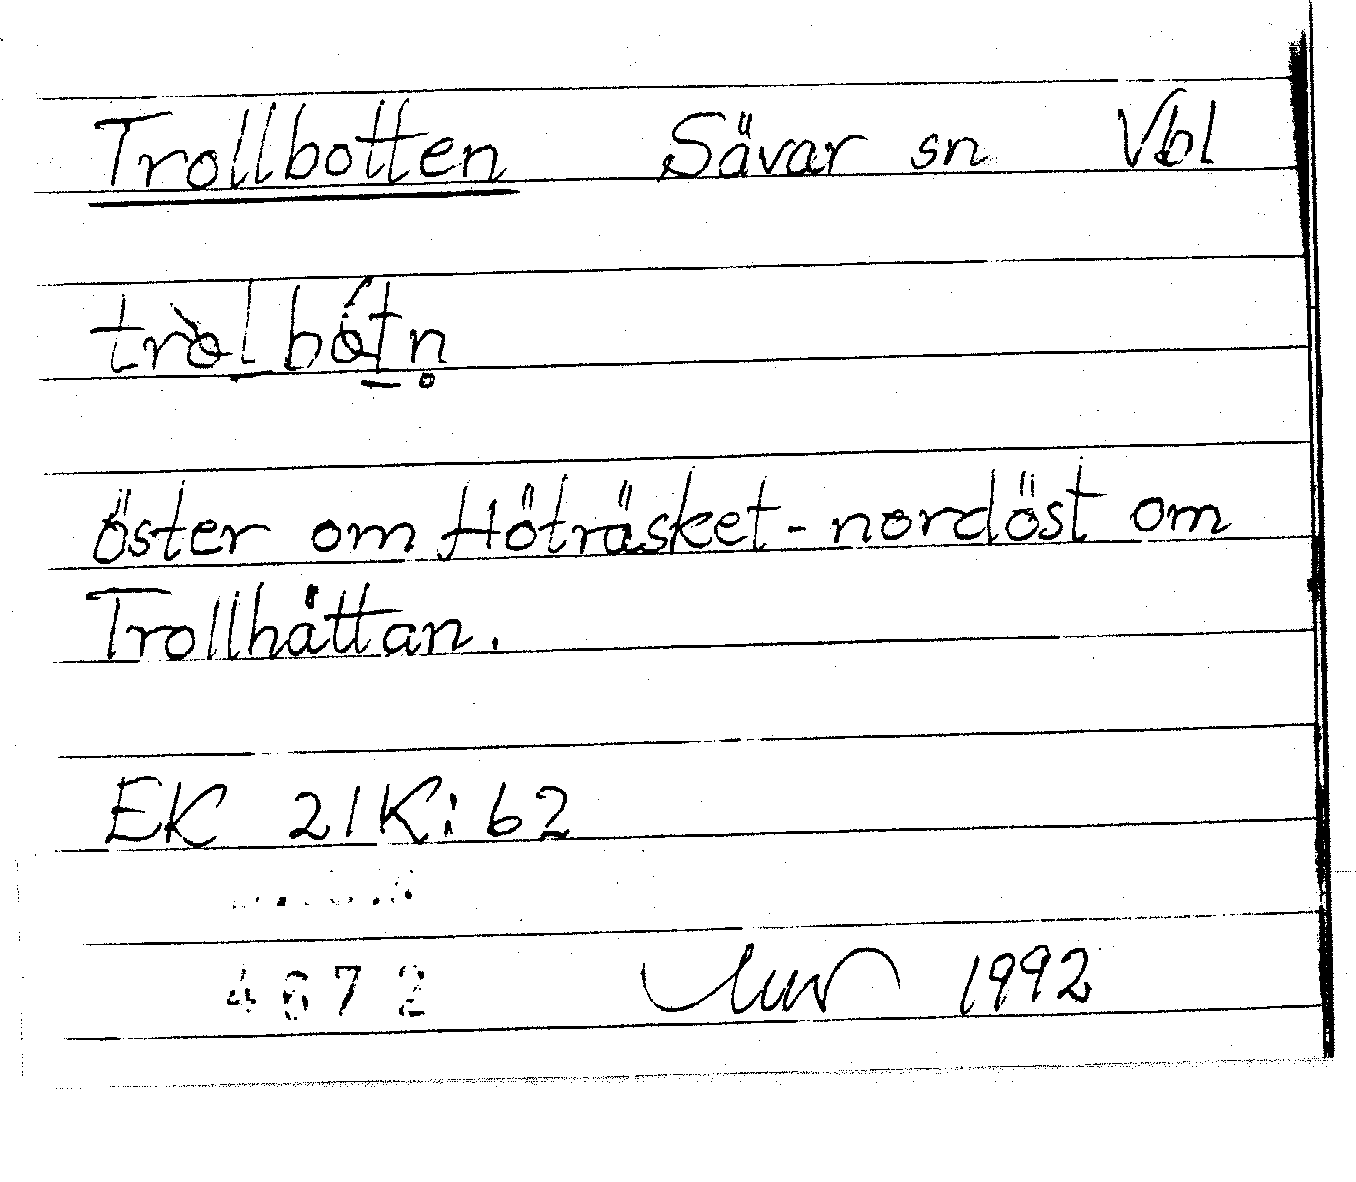 Trollbotten Sävar sn Vbl
tròl bótn̥
öster om Höträsket - nordöst om
Trollhåttan.
EK 21K:62
4672 1992